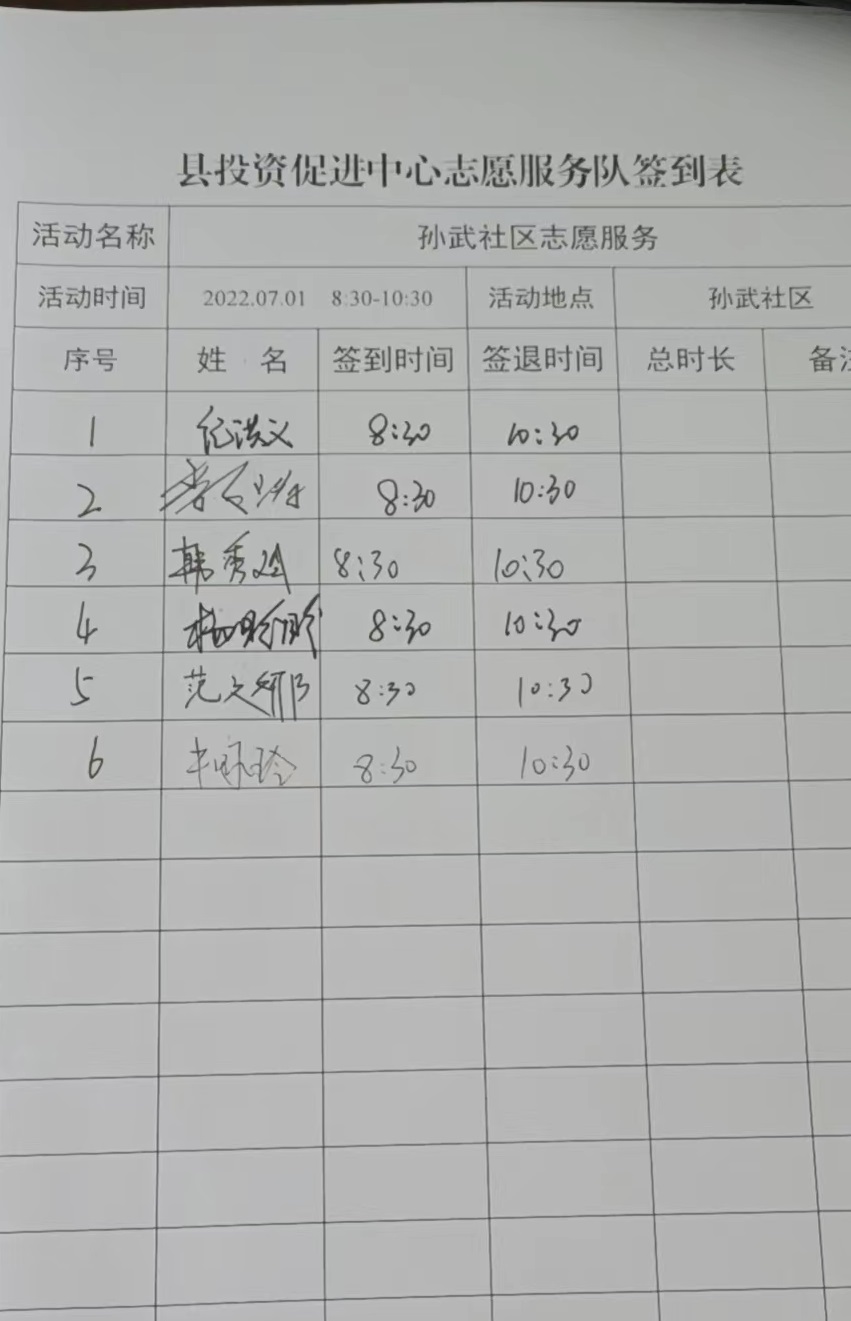 县投资促进中心志愿服务队签到表
活动名称 孙武社区志愿服务
活动时间 2022.07.01 8:30-10:30 活动地点 孙武社区
序号 姓 名 签到时间 签退时间 总时长 备注
1 纪洪义 8:30 10:30
2 8:30 10:30
3 韩秀 8:30 10:30
4 杨 8:30 10:30
5 范文 8:30 10:30
6 8:30 10:30